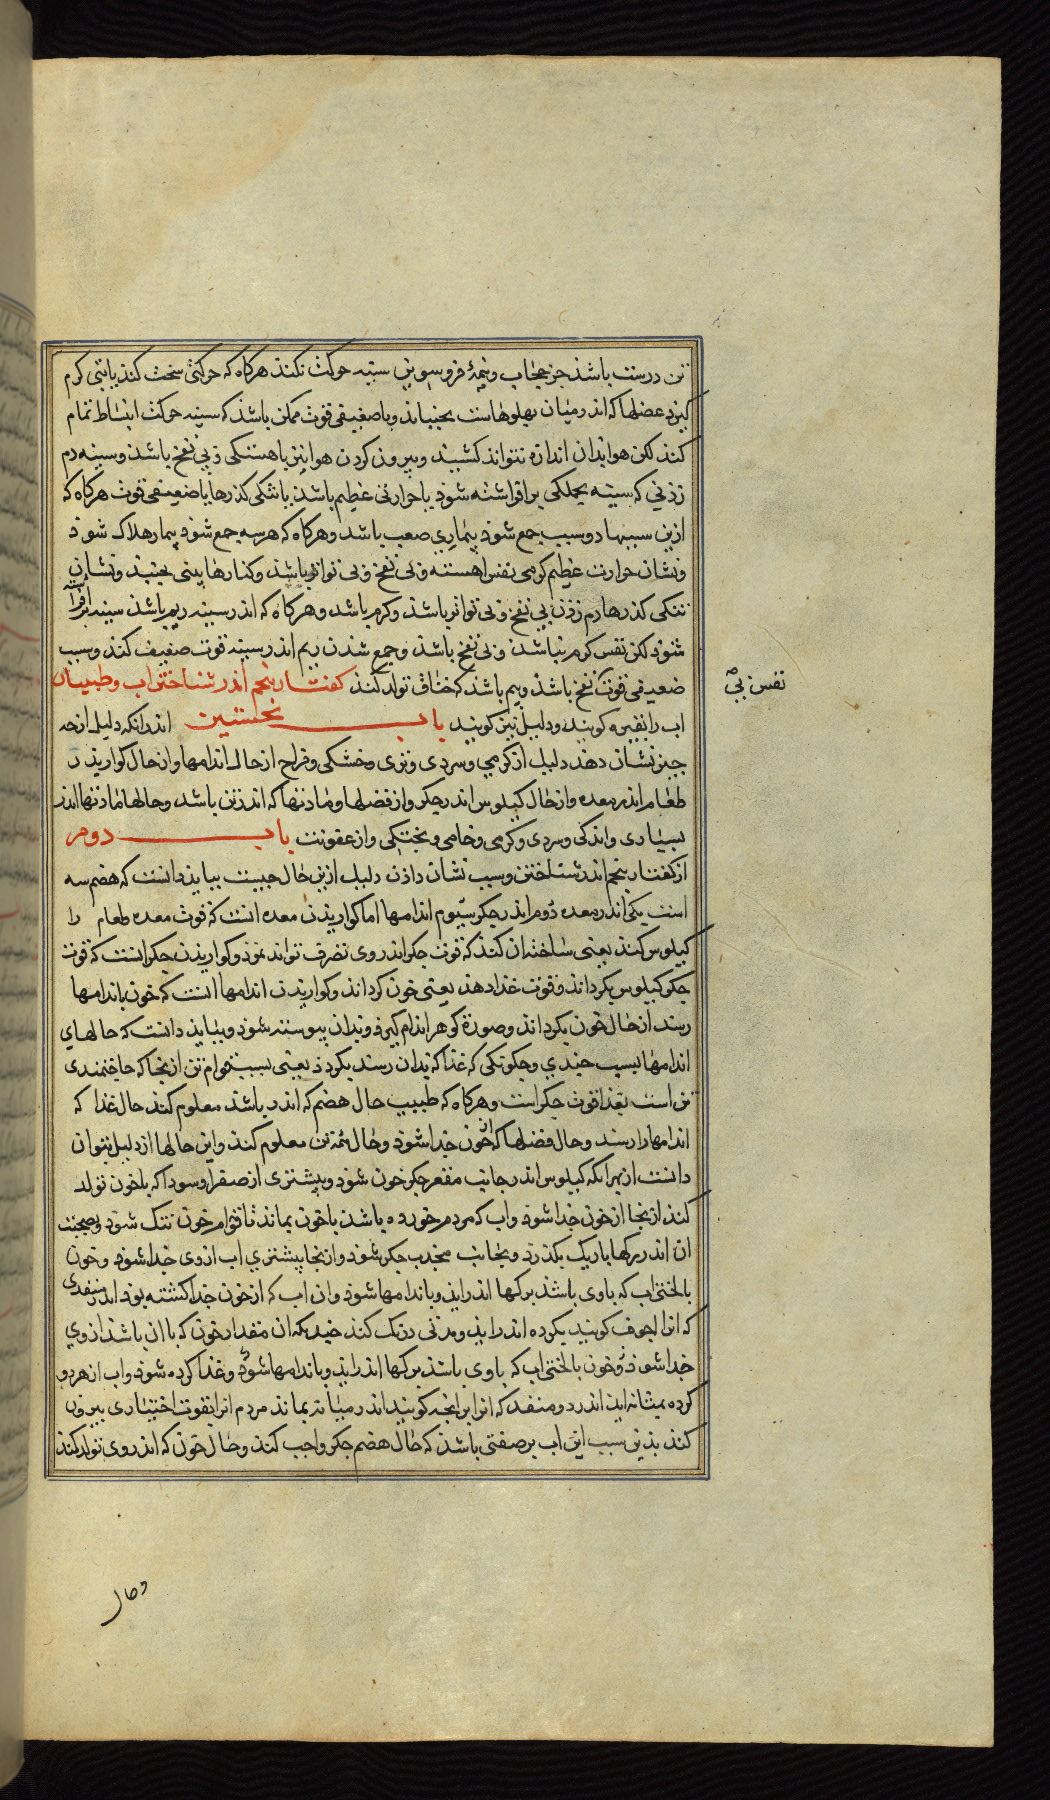 تن درست باشد جز حجاب و نیمهٔ فروسوین سینه حرکت نکند هرکاه که حرکتی سخت کند یا تبی کرم
کیرد عضلها که اندر میان پهلوهاست بجنباند و با ضعیفی قوت ممکن باشد که سینه حرکت انبساط تمام
کند لکن هوا بدان اندازه نتواند کشید و بیرون کردن هوا نیز باهستکی و بی نفخ باشد و سینه دم
زدنی که سینه بجملکی برافراشته شود یا حرارتی عظیم باشد یا تنکی کذرها یا ضعیفی قوت هرکاه که
ازین سببها دو سبب جمع شود بیماری صعب باشد و هرکاه که هر سه جمع شود بیمار هلاک شود
و نشان حرارت عظیم کرمی نفس اهسته و بی نفخ و بی تواتر باشد و کنارها بینی بجنبد و نشان
تنکی کذرها دم زدن بی نفخ و بی تواتر باشد و کرم باشد و هرکاه که اندر سینه ریم باشد سینه برافراشته
شود لکن نفس کرم نباشد و بی نفخ باشد و جمع شدن ریم اندر سینه قوت ضعیف کند و سبب
ضعیفی قوت نفخ باشد و بیم باشد که خناق تولد کند کفتار پنجم اندر شناختن اب و طبیبان
نفس بی صح
اب را تفسره کویند و دلیل نیز کویند باب نخستین اندر انکه دلیل از چه
چیز نشان دهد دلیل از کرمی و سردی و تری و خشکی و مزاج از حال اندامها و از حال کواریدن
طعام اندر معده و از حال کیلوس اندر جکر و از فضلها و مادتها که اندر تن باشد و حالها مادتها اندر
بسیاری و اندکی و سردی و کرمی و خامی و پختکی و از عفونت باب دوم
از کفتار پنجم اندر شناختن و سبب نشان دادن دلیل ازین حال چیست بباید دانست که هضم سه
است یکی اندر معده دوم اندر جکر سیوم اندامها اما کواریدن معده انست که قوت معده طعام را
کیلوس کند یعنی ساخته ان کند که قوت جکر اندر وی تصرف تواند نمود و کواریدن جکر انست که قوت
جکر کیلوس بکرداند و قوت غذا دهد یعنی خون کرداند و کواریدن اندامها انست که خون باندامها
رسد از حال خون بکرداند و صورة کوهر اندام کیرد و بدان پیوسته شود و بباید دانست که حالهای
اندامها بسبب چندی و چکونکی که غذا که بدان رسد بکردد یعنی بسبب قوام تن از بنجا که حاجتمندی
تن است بغذا قوت جکر است و هرکاه که طبیب حال هضم که اندر باشد معلوم کند حال غذا که
اندامها را رسد و حال فضلها که از خون جدا شود و حال همه تن معلوم کند و این حالها از دلیل بتوان
دانست از بهر انکه کیلوس اندر جانب مقعر جکر خون شود و بیشتری از صفرا و سودا که با خون تولد
کند از بنجا از خون جدا شود و اب که مردم خورده باشد با خون بماند تا قوام خون تنک شود و بصحبت
ان اندر رکها باریک بکذرد و بجانب محدب جکر شود و از بنجا بیشتری اب از وی جدا شود و خون
با لختی اب که با وی باشد برکها اندر اید و باندامها شود و ان اب که از خون جدا کشته بود اندر منفذی
که انرا اجوف کویند بکرده اندر اید و مدتی درنک کند چندانکه ان مقدار خون که با ان باشد از وی
جدا شود و خون با لختی اب که با وی باشد برکها اندر اید و باندامها شود و غذا کرده شود و اب از هر دو
کرده بمثانه اید اندر دو منفذ که انرا برابخه کویند اندر مثانه بماند مردم انرا بقوت اختیاری بیرون
کند بدین سبب این اب بر صفتی باشد که حال هضم جکر واجب کند و حال خون که اندر وی تولد کند
و حال